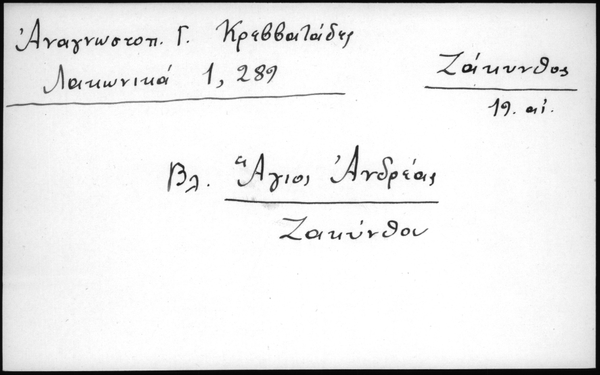 Ἀναγνωστοπ. Γ. Κρεββατάδες
Λακωνικά 1, 289
Ζάκυνθος
19. αἰ.
Βλ. Ἅγιος Ἀνδρέας
Ζακύνθου